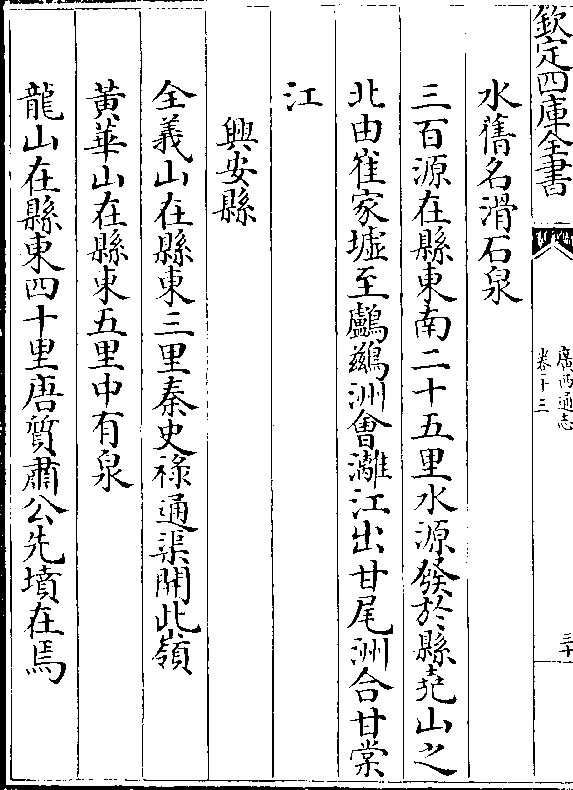 欽定四庫全書
廣西通志
卷十三
三十一
水舊名滑石泉
三百源在縣東南二十五里水源發於縣尭山之
北由崔家墟至鸕鷀洲會灕江出甘尾洲合甘棠
江
興安縣
全義山在縣東三里秦史祿通渠開此嶺
黃華山在縣東五里中有泉
龍山在縣東四十里唐質肅公先墳在焉